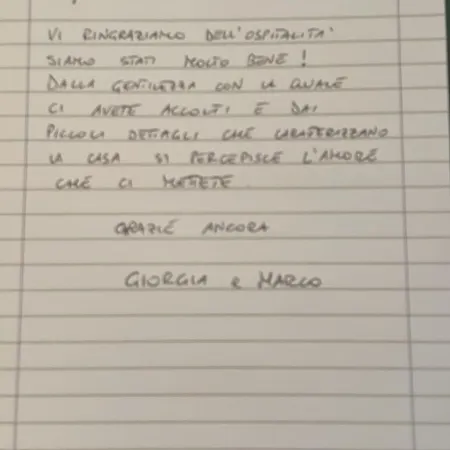 VI RINGRAZIAMO DELL'OSPITALITA'
SIAMO STATI MOLTO BENE!
DALLA GENTILEZZA CON LA QUALE
CI AVETE ACCOLTI E DAI
PICCOLI DETTAGLI CHE CARATTERIZZANO
LA CASA SI PERCEPISCE L'AMORE
CHE CI METTETE
GRAZIE ANCORA
GIORGIA e MARCO